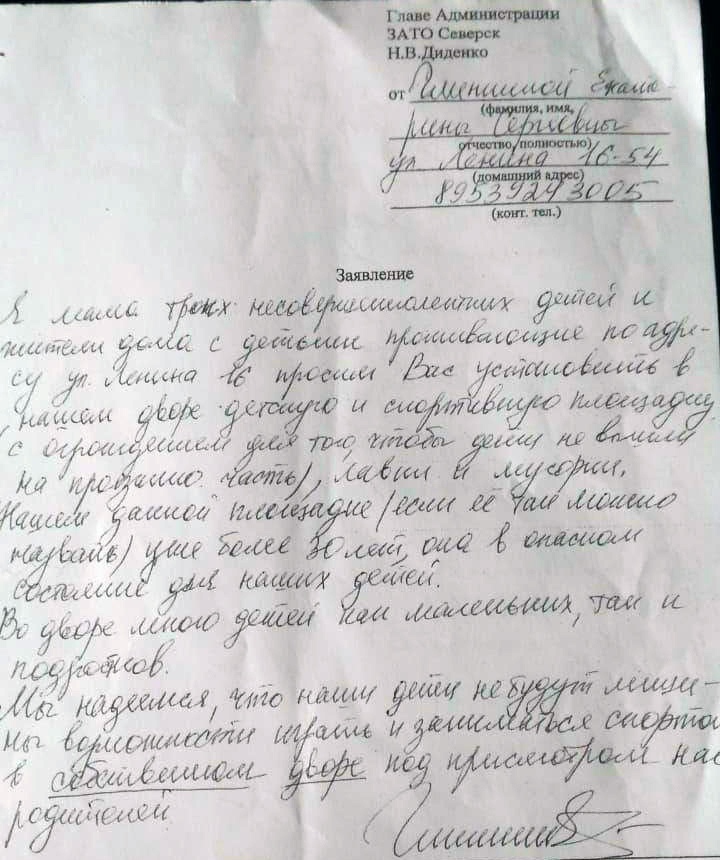 Главе Администрации
ЗАТО Северск
Н.В.Диденко
от Екате-
(фамилия, имя,
рины Сергеевны
отчество, полностью)
ул Ленина 16-54
(домашний адрес)
89539243005
(конт. тел.)
Заявление
Я мама троих несовершеннолетних детей и
жители дома с детьми проживающие по адре-
су ул. Ленина 16 просим Вас установить в
нашем дворе детскую и спортивную площадку
(с ограждением для того, чтобы дети не вышли
на проезжую часть), лавки и мусорки.
Нашей данной площадке (если её так можно
назвать) уже более 30 лет, она в опасном
состояние для наших детей.
Во дворе много детей как маленьких, так и
подростков.
Мы надеемся, что наши дети не будут лише-
ны возможности играть и заниматься спортом
в собственном дворе под присмотром нас
родителей.